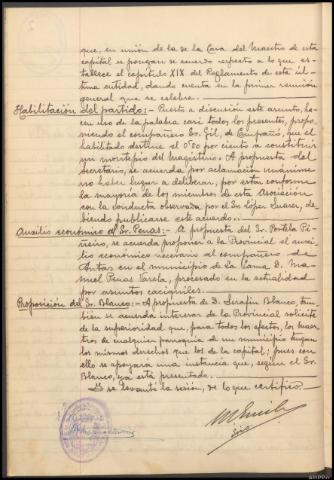 que, en unión de la de la Casa del Maestro de esta
capital se pongan de acuerdo respecto a lo que es-
tablece el capítulo XIX del Reglamento de esta úl-
tima entidad, dando cuenta en la primera reunión
general que se celebre.
Habilitación del partido:- Puesto a discusión este asunto, ha-
cen uso de la palabra casi todos los presentes, propo-
niendo el compañero Sr. Gil, de Campañó, que el
habilitado destine el 0'50 por ciento a constituir
un montepio del Magisterio. A propuesta del
Secretario, se acuerda por aclamación unánime
no haber lugar a deliberar, por estar conforme
la mayoría de los miembros de esta Asociación
con la conducta observada por el Sr. López Suárez, de-
biendo publicarse este acuerdo.
Auxilio económico al Sr. Penas:- A propuesta del Sr. Portela Pi-
ñeiro, se acuerda proponer a la Provincial el auxi-
lio económico necesario al compañero de
Antas en el municipio de La Lama D. Ma-
nuel Penas Varela, procesado en la actualidad
por asuntos caciquiles.
Proposición del Sr. Blanco:- A propuesta de D. Serafín Blanco, tam-
bién se acuerda interesar de la Provincial solicite
de la superioridad que, para todos los efectos, los maes-
tros de cualquier parroquia de un municipio tengan
los mismos derechos que los de la capital; pues con
ello se apoyará una instancia que, según el Sr.
Blanco, ya está presentada.
Y se levantó la sesión, de lo que certifico.